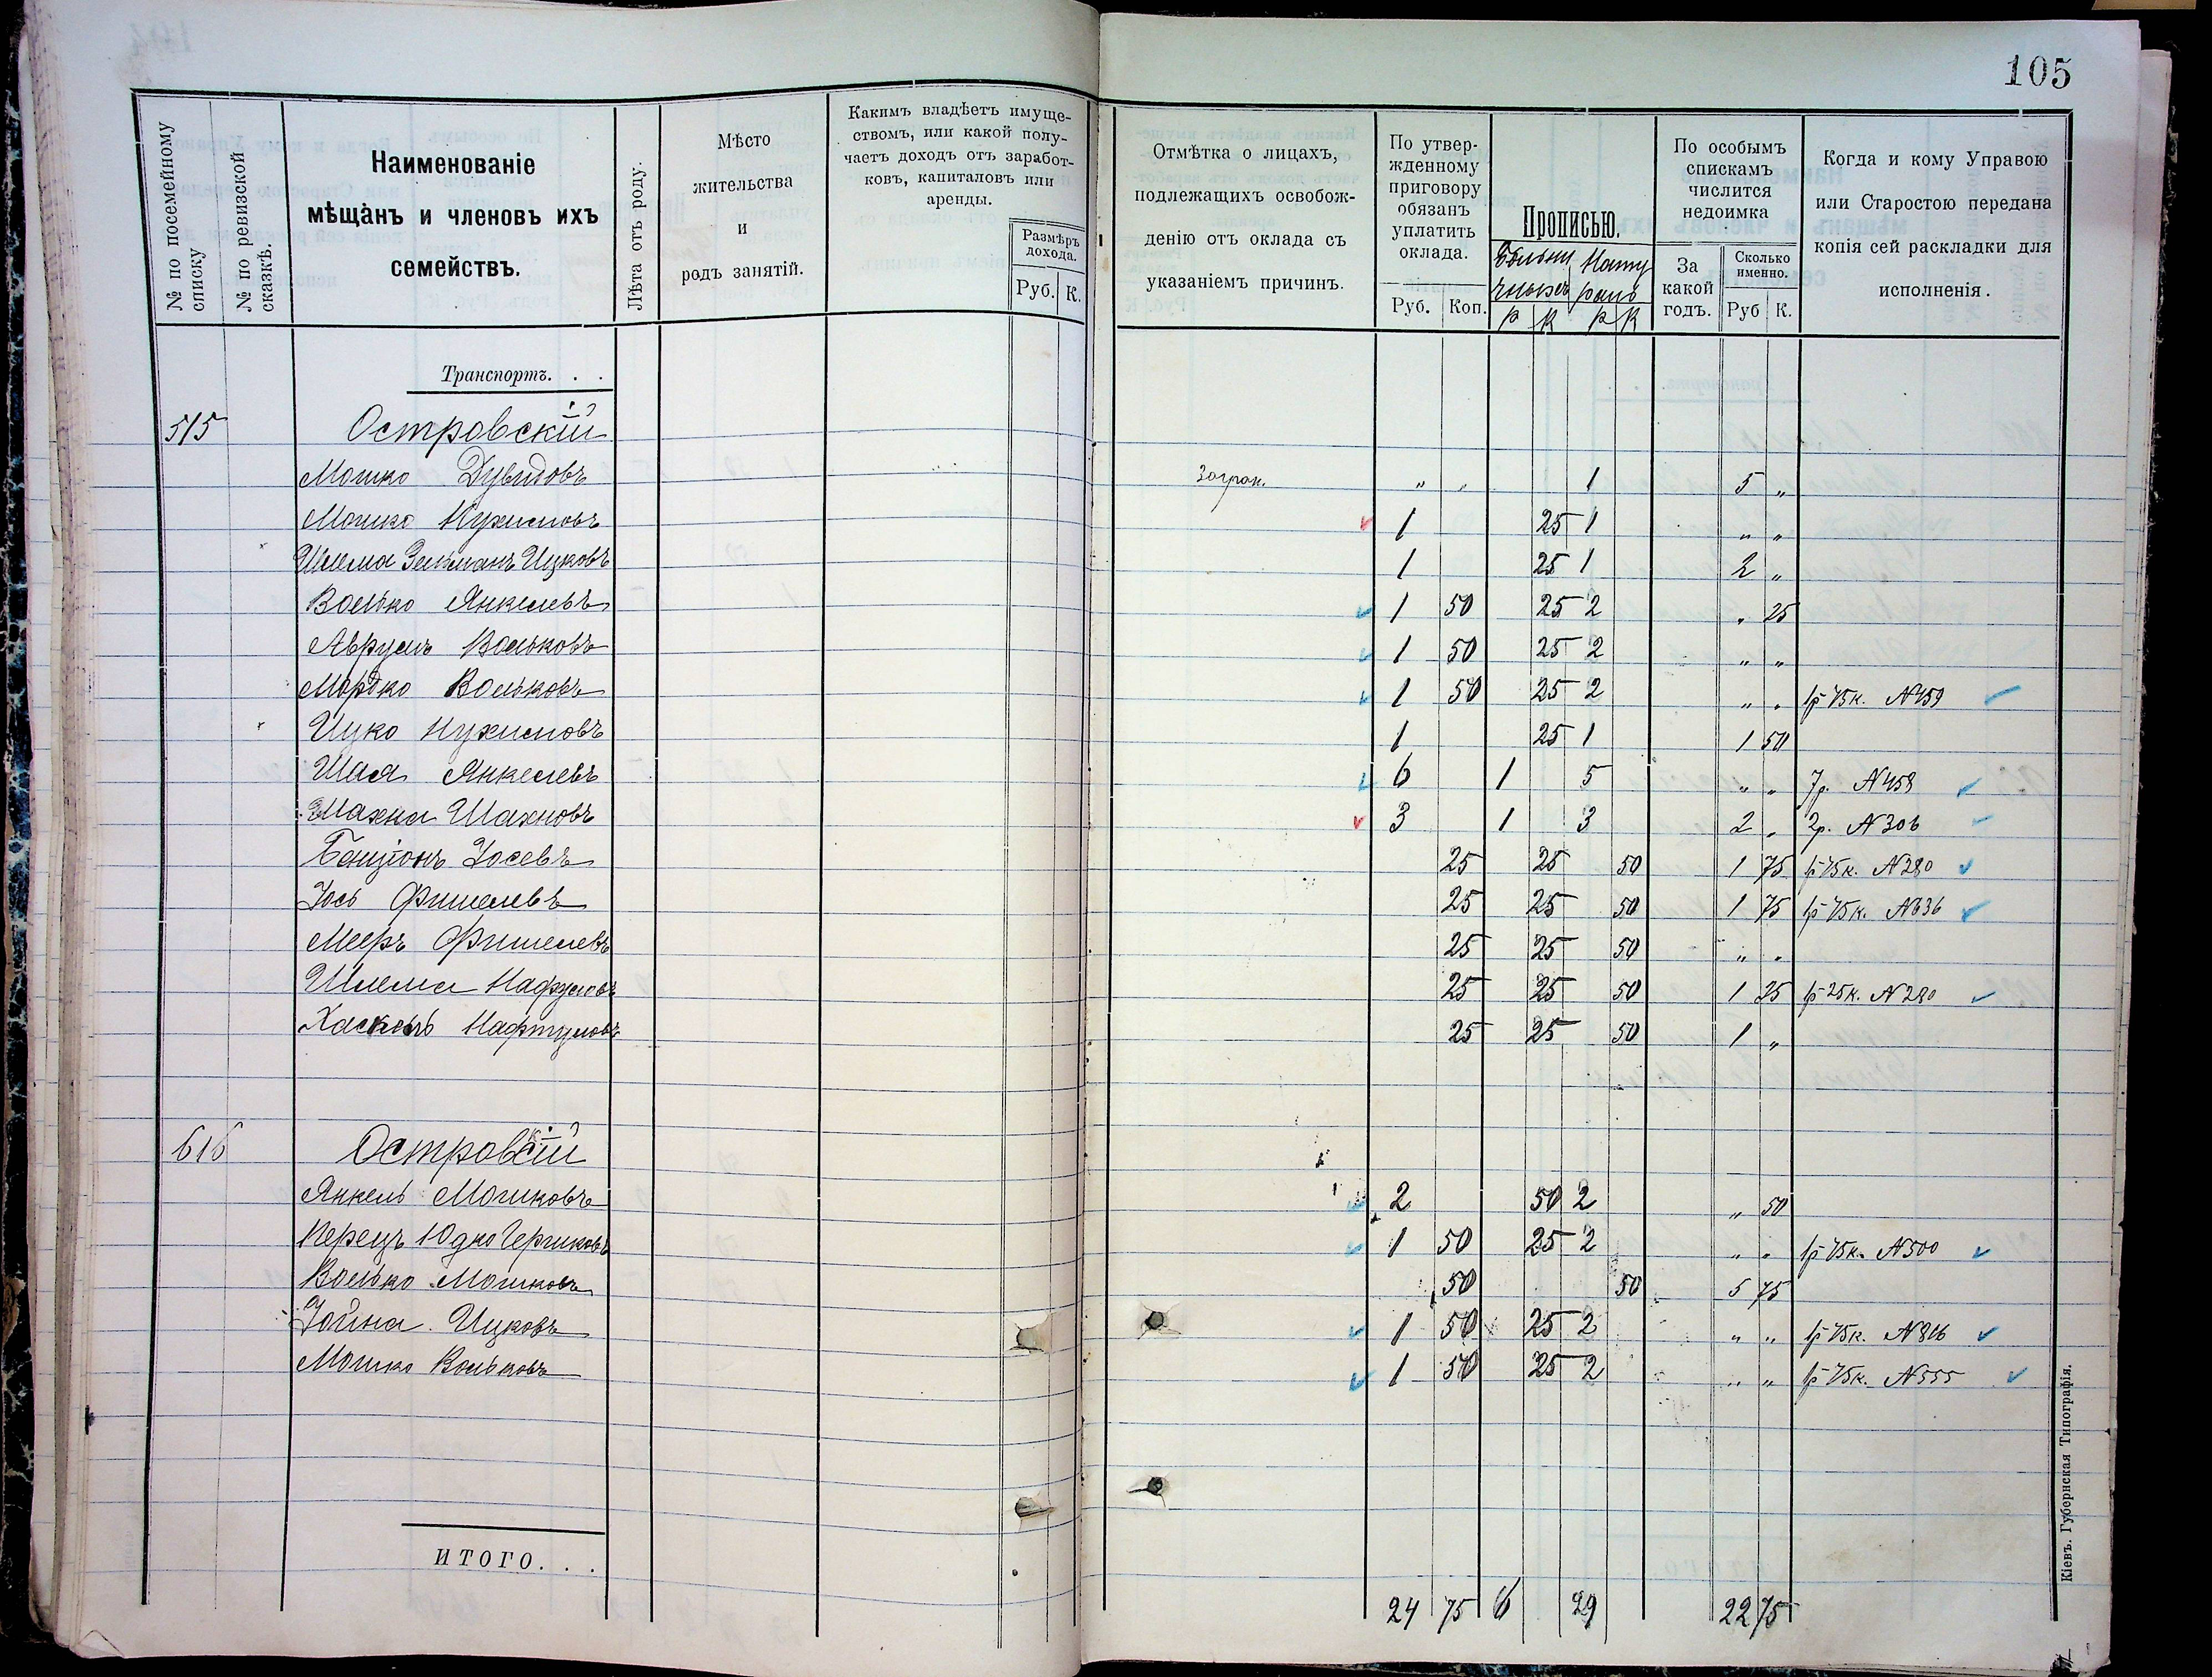 105
№ по посемейному списку
№ по ревизской сказкѣ.
Наименованіе
мѣщанъ и членовъ ихъ
семействъ.
Лѣта отъ роду.
Мѣсто
жительства
и
родъ занятій.
Какимъ владѣетъ имуще-
ствомъ, или какой полу-
чаетъ доходъ отъ заработ-
ковъ, капиталовъ или
аренды.
Размѣръ
дохода.
Руб. К.
Отмѣтка о лицахъ,
подлежащихъ освобож-
денію отъ оклада съ
указаніемъ причинъ.
По утвер-
жденному
приговору
обязанъ
уплатить
оклада.
Руб. Коп.
Прописью.
Больни Нату
чныхъ ралъ
Р К Р К
По особымъ
спискамъ
числится
недоимка
За
какой
годъ.
Сколько
именно.
Руб К.
Когда и кому Управою
или Старостою передана
копія сей раскладки для
исполненія.
Транспортъ. . .
515 Островскій
Мошко Дувидовъ Загран. " " 1 5 "
Мошко Нухимовъ 1 25 1 " "
Шлема Зельманъ Ицковъ 1 25 1 2 "
Волько Янкелевъ 1 50 25 2 " 25
Аврумъ Вольковъ 1 50 25 2 " "
Мордко Вольковъ 1 50 25 2 " " 1р 75к. N459
Ицко Нухимовъ 1 25 1 1 50
Шая Янкелевъ 6 1 5 " " 7р. N458
Шахна Шахновъ 3 1 3 2 " 2р. N306
Бенціонъ Іосевъ 25 25 50 1 75 1р 75к. N280
Іось Фишелевъ 25 25 50 1 75 1р 75к. N636
Мееръ Фишелевъ 25 25 50 " "
Шлема Нафтуловъ 25 25 50 1 25 1р 25к. N280
Хаскель Нафтуловъ 25 25 50 1 "
616 Островскій
Янкель Мошковъ 2 50 2 " 50
Перецъ Юдко Гершковъ 1 50 25 2 " " 1р 75к. N500
Волько Мошковъ 50 50 5 75
Іойна Ицковъ 1 50 25 2 " " 1р 75к. N816
Мошко Вольковъ 1 50 25 2 " " 1р 75к. N555
ИТОГО. . .
24 75 6 29 22 75
Кіевъ. Губернская Типографія.